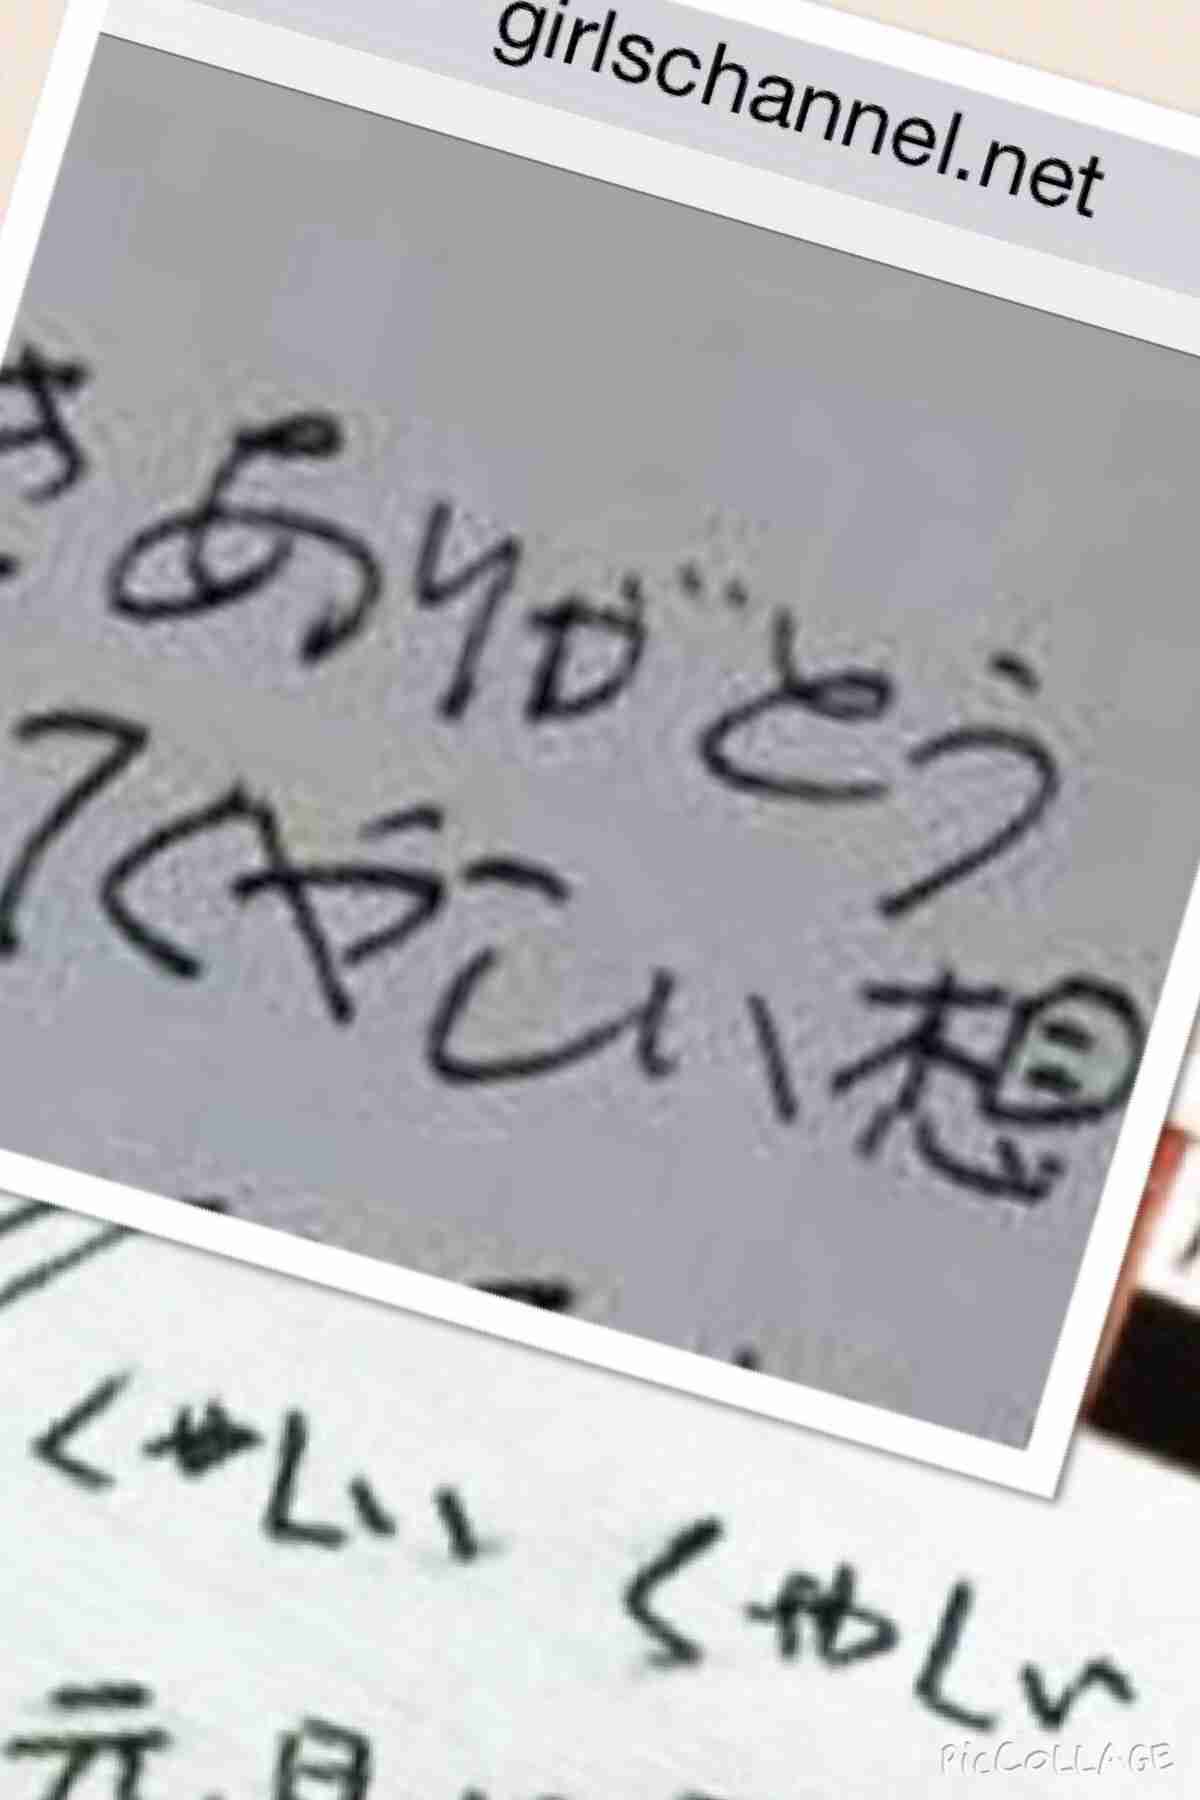 girlschannel.net
ありがとう
てくやしい想
くやしい くやしい
元旦
PicCOLLAGE